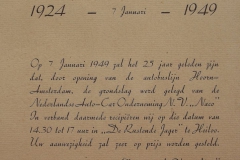 1924 — 7 Januari — 1949
Op 7 Januari 1949 zal het 25 jaar geleden zijn
dat, door opening van de autobuslijn Hoorn-
Amsterdam, de grondslag werd gelegd van de
Nederlandse Auto-Car Onderneming N.V. „Naco"
In verband daarmede recipiëren wij op die datum van
14.30 tot 17 uur in „De Rustende Jager" te Heiloo.
Uw aanwezigheid zal zeer op prijs worden gesteld.